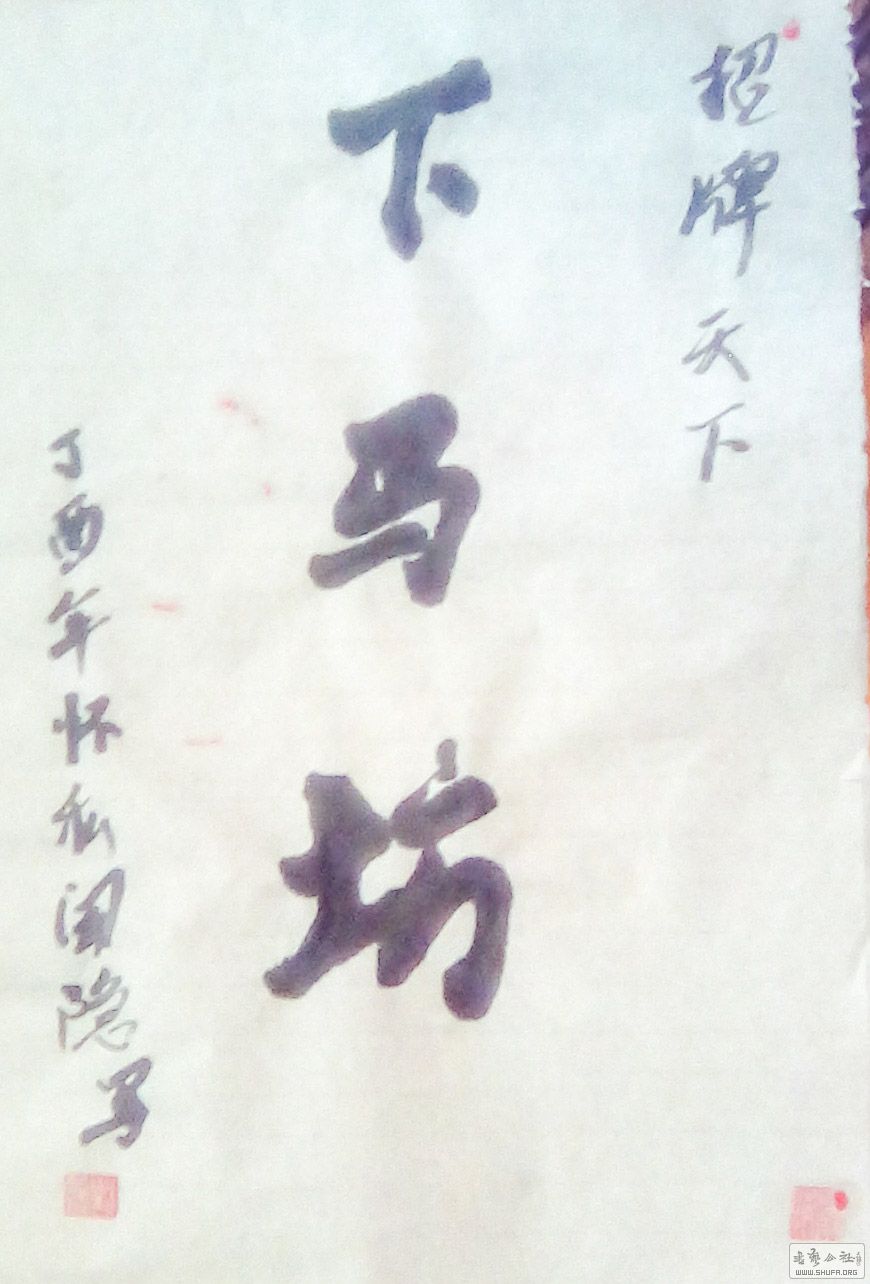 招牌天下
下马坊
丁酉年怀私闲隐写
书艺公社
WWW.SHUFA.ORG